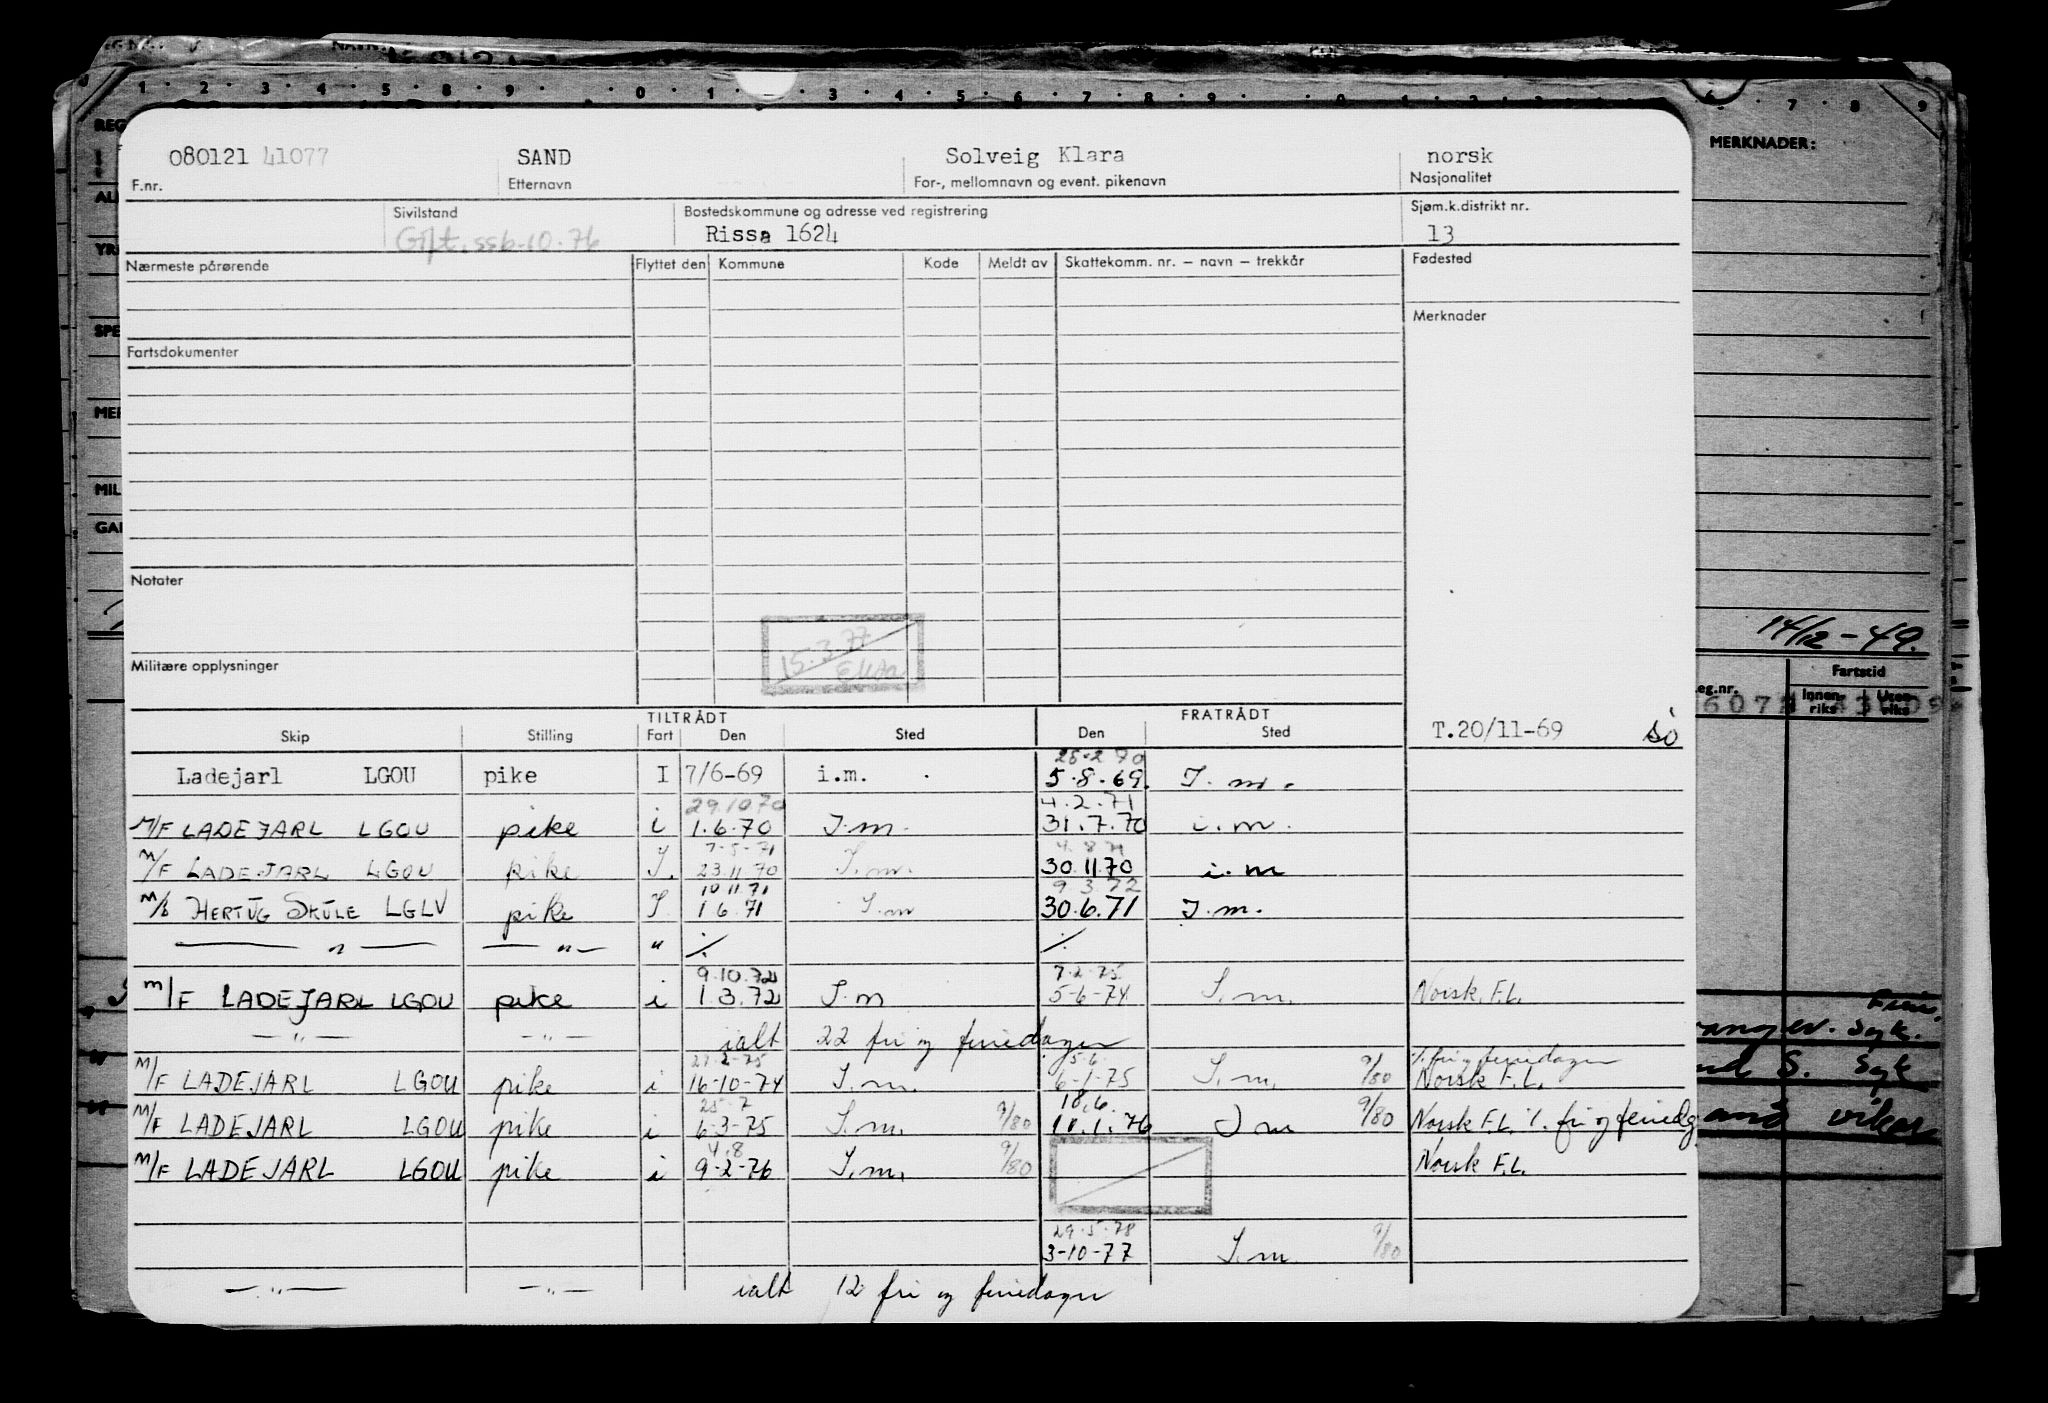 1 2 3 4 5 8 9 0 1 3 4 5 6 7 8 9 0 1 2 3 6 7 8 9
MERKNADER:
080121 41077 SAND Solveig Klara norsk
F.nr. Etternavn For-, mellomnavn og event. pikenavn Nasjonalitet
Sivilstand Bostedskommune og adresse ved registrering Sjøm.k.distrikt nr.
Gift. ssb-10.76 Rissa 1624 13
Nærmeste pårørende Flyttet den Kommune Kode Meldt av Skattekomm. nr. – navn – trekkår Fødested
Merknader
Fartsdokumenter
Notater
15.3.77
14/12-49.
Militære opplysninger
Fartstid
eg.nr. Innen-riks Uten-riks
TILTRÅDT FRATRÅDT
Skip Stilling Fart Den Sted Den Sted T.20/11-69 sö
25.2 70
Ladejarl LGOU pike I 7/6-69 i.m. 5.8.69. I.m.
29.10.70 4.2.71
M/F LADEJARL LGOU pike i 1.6.70 I.m. 31.7.70 i.m.
7-5-71 4.8 71
M/F LADEJARL LGOU pike I. 23.11.70 I.m. 30.11.70 i.m
10 11.71 9 3.72
M/S HERTUG SKULE LGLV pike I 1 6.71 I.m 30.6.71 I.m.
— " — — " — " ./. ./.
9.10.72 7.2.75
M/F LADEJARL LGOU pike i 1.3.72 I.m 5-6-74 I.m. Norsk F.L.
— " — — " — ialt 22 fri og feriedager
27-2-75 5-6 %. fri og feriedager
M/F LADEJARL LGOU pike i 16-10-74 I.m. 6-1-75 I.m. 9/80 Norsk F.L.
25-7 18.6.
M/F LADEJARL LGOU pike i 6-3-75 I.m. 9/80 11.1.76 I m 9/80 Norsk F.L. %. fri og feriedg
4.8
M/F LADEJARL LGOU pike i 9-2-76 I.m. 9/80 Norsk F.L.
29.5.78
3-10-77 I.m. 9/80
— " — — " — ialt 12 fri og feriedager